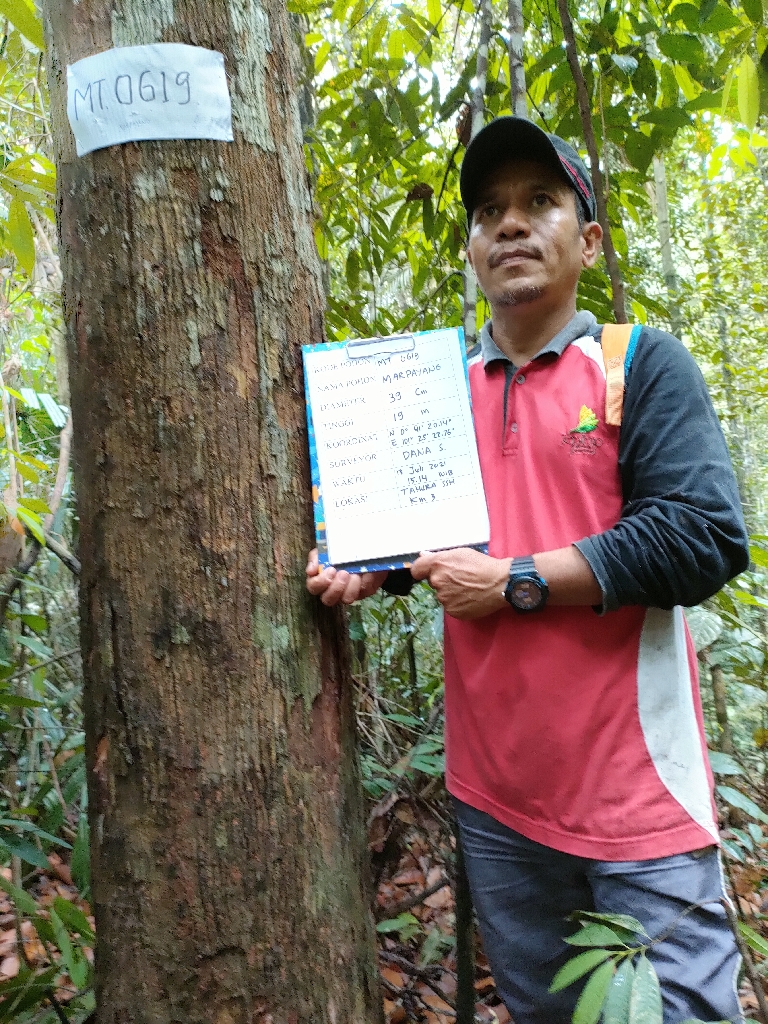 MT.0619
KODE POHON MT 0619
NAMA POHON MARPAYANG
DIAMETER 39 Cm
TINGGI 19 m
KOORDINAT N 0° 41' 20.14"
E 101° 25' 22.76"
SURVEYOR DANA S.
WAKTU Juli 2021
15.14 WIB
LOKASI TAHURA SSH
Km 3